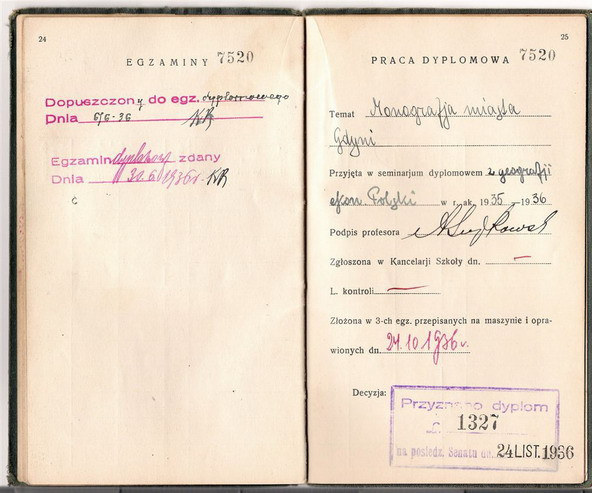 24
EGZAMINY 7520
Dopuszczony do egz. dyplomowego
Dnia 6/6-36
Egzamin dyplomowy zdany
Dnia 30.6.1936r.
25
PRACA DYPLOMOWA 7520
Temat Monografja miasta
Gdyni
Przyjęta w seminarjum dyplomowem z geografji
ekon. Polski w r. ak. 1935 - 1936
Podpis profesora
Zgłoszona w Kancelarji Szkoły dn. —
L. kontroli —
Złożona w 3-ch egz. przepisanych na maszynie i opra-
wionych dn. 24.10.1936r.
Decyzja:
Przyznano dyplom
L. 1327
na posiedz. Senatu dn. 24 LIST. 1936